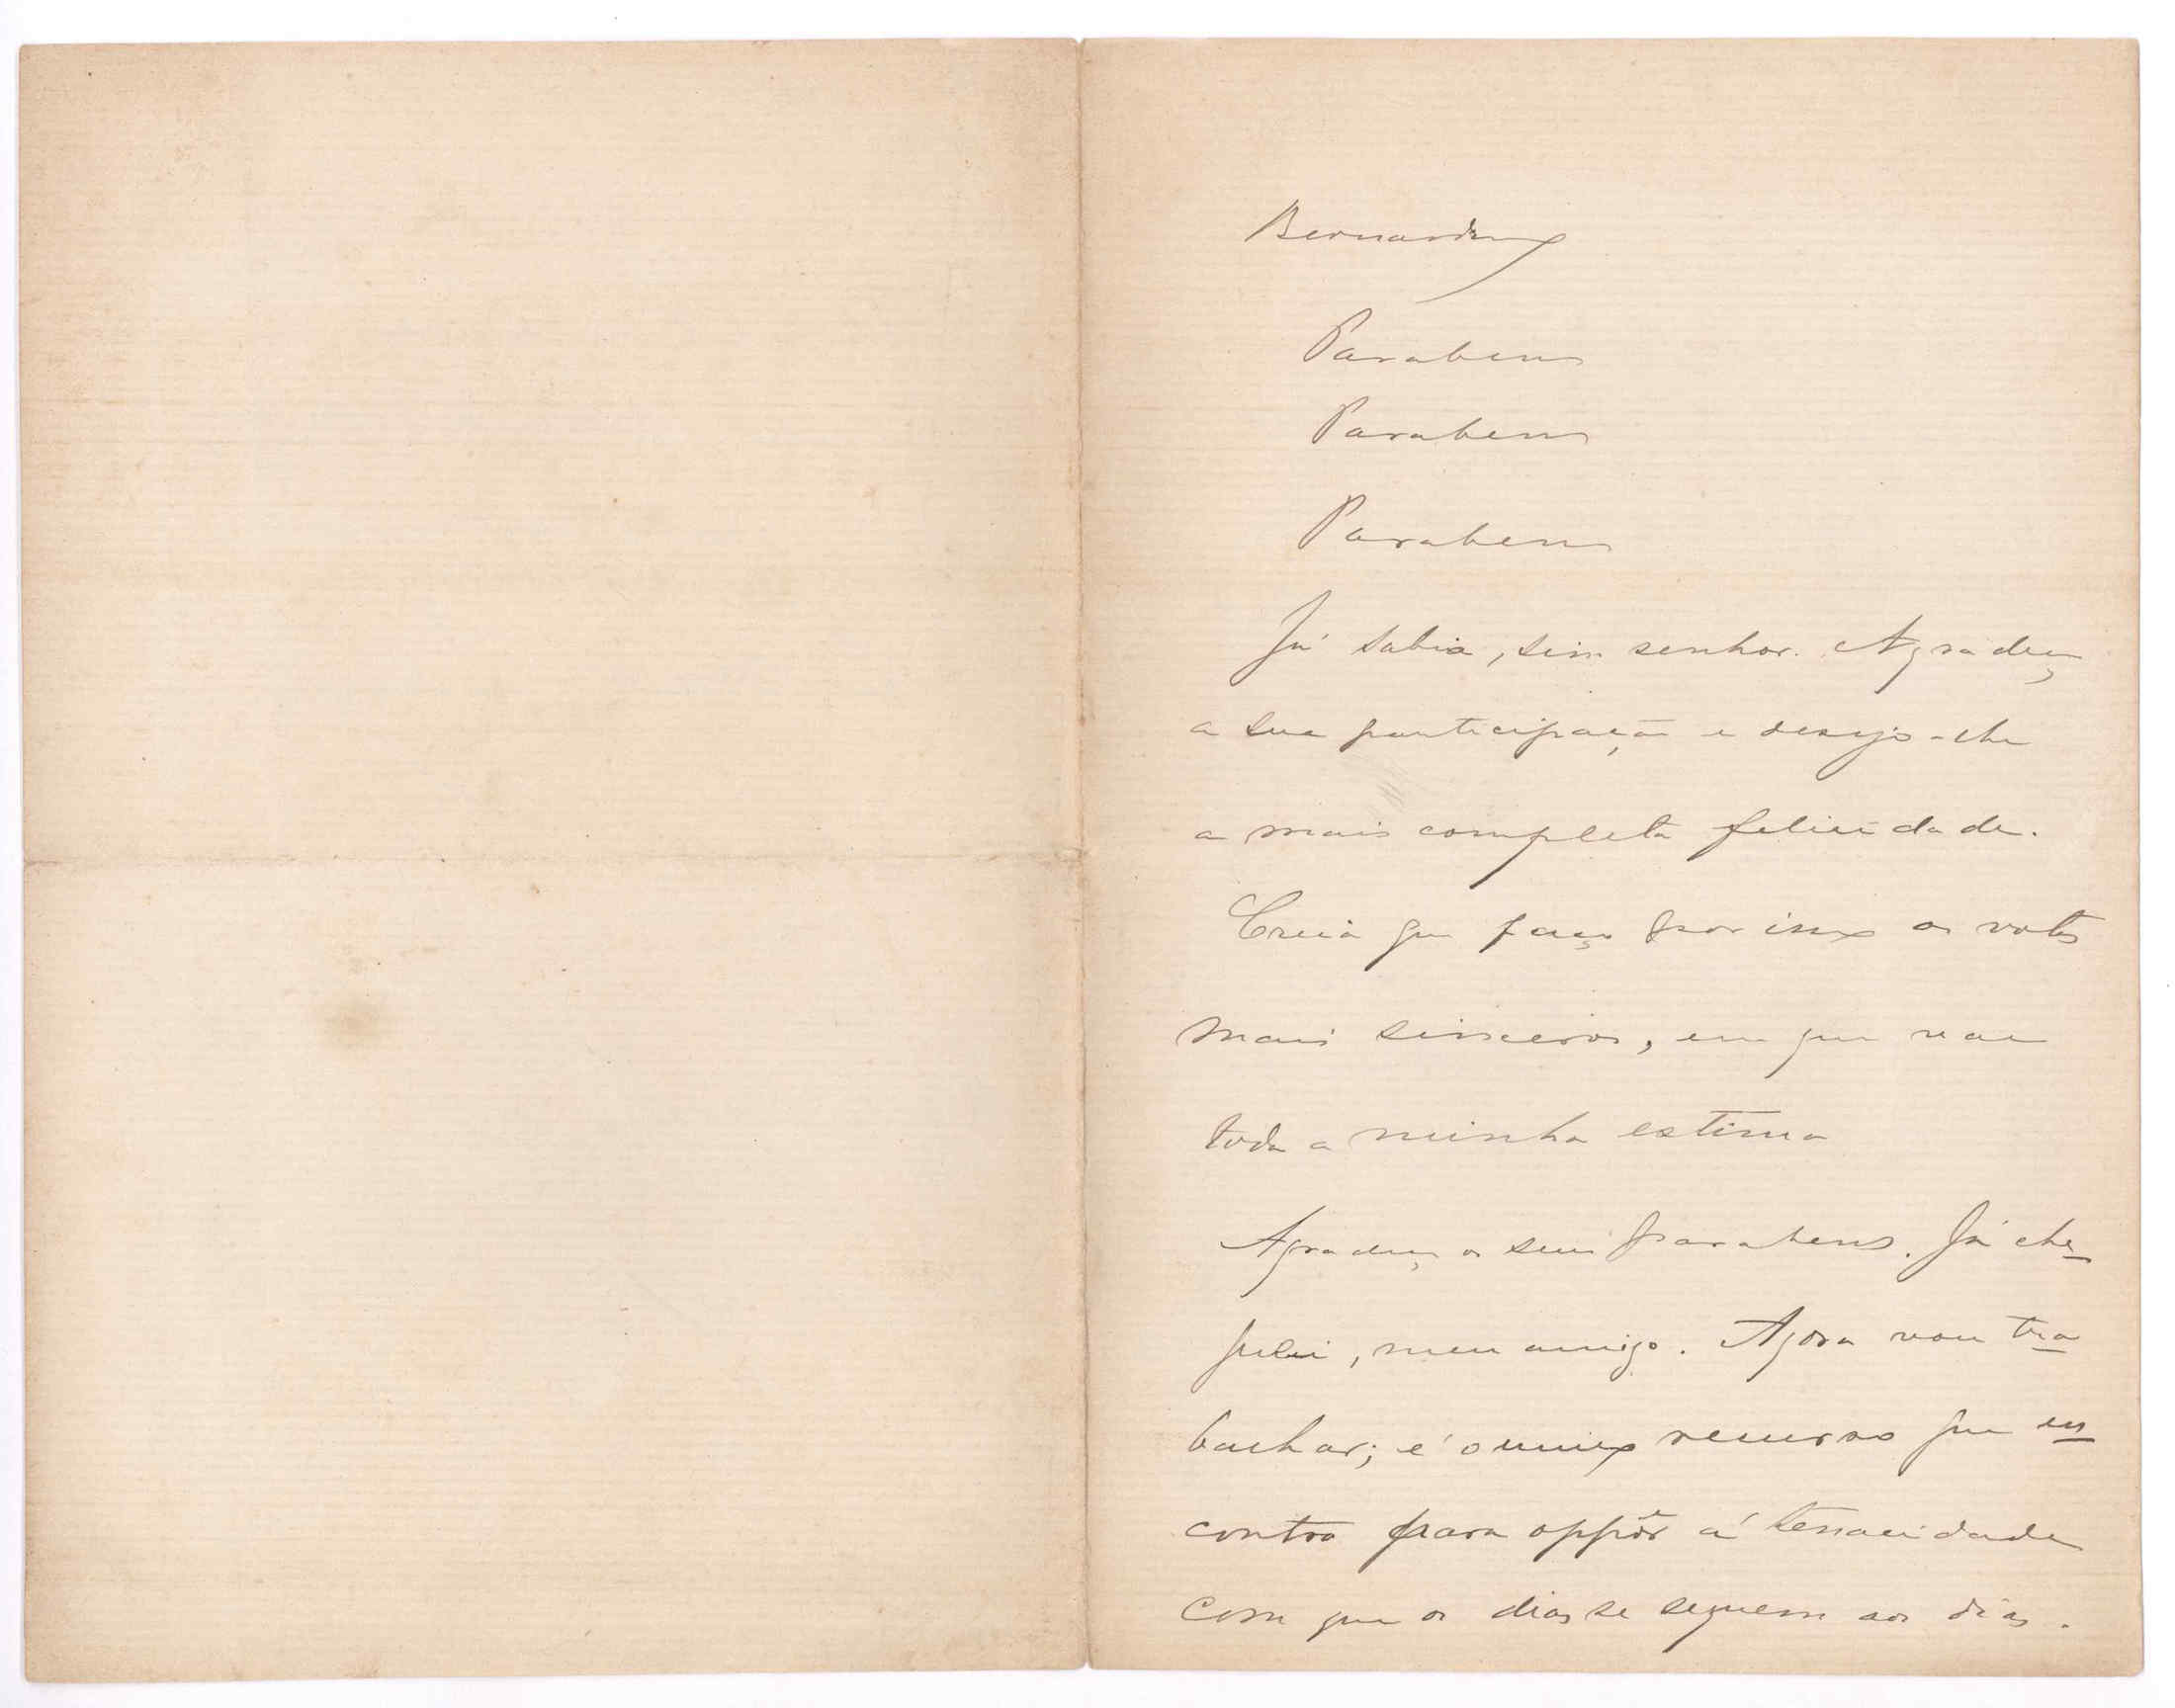 Bernardino
Parabens
Parabens
Parabens
Já sabia, sim senhor. Agradeço
a sua participação e desejo-lhe
a mais completa felicidade.
Creia que faço por isso os votos
mais sinceros, em que vae
toda a minha estima
Agradeço os seus parabens. Já che-
guei, meu amigo. Agora vou tra-
balhar; é o unico recurso que en-
contro para oppôr á tenacidade
com que os dias se seguem aos dias.